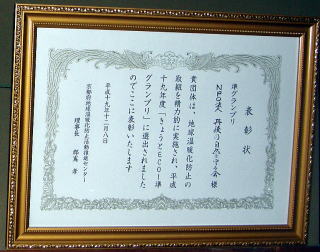 表彰状
準グランプリ
NPO法人 丹後の自然を守る会 様
貴団体は、地球温暖化防止の
取組を精力的に実施され、平成
十九年度「きょうとECO1準
グランプリ」に選出されました
のでここに表彰いたします
平成十九年十二月八日
京都府地球温暖化防止活動推進センター
理事長 郡嶌 孝